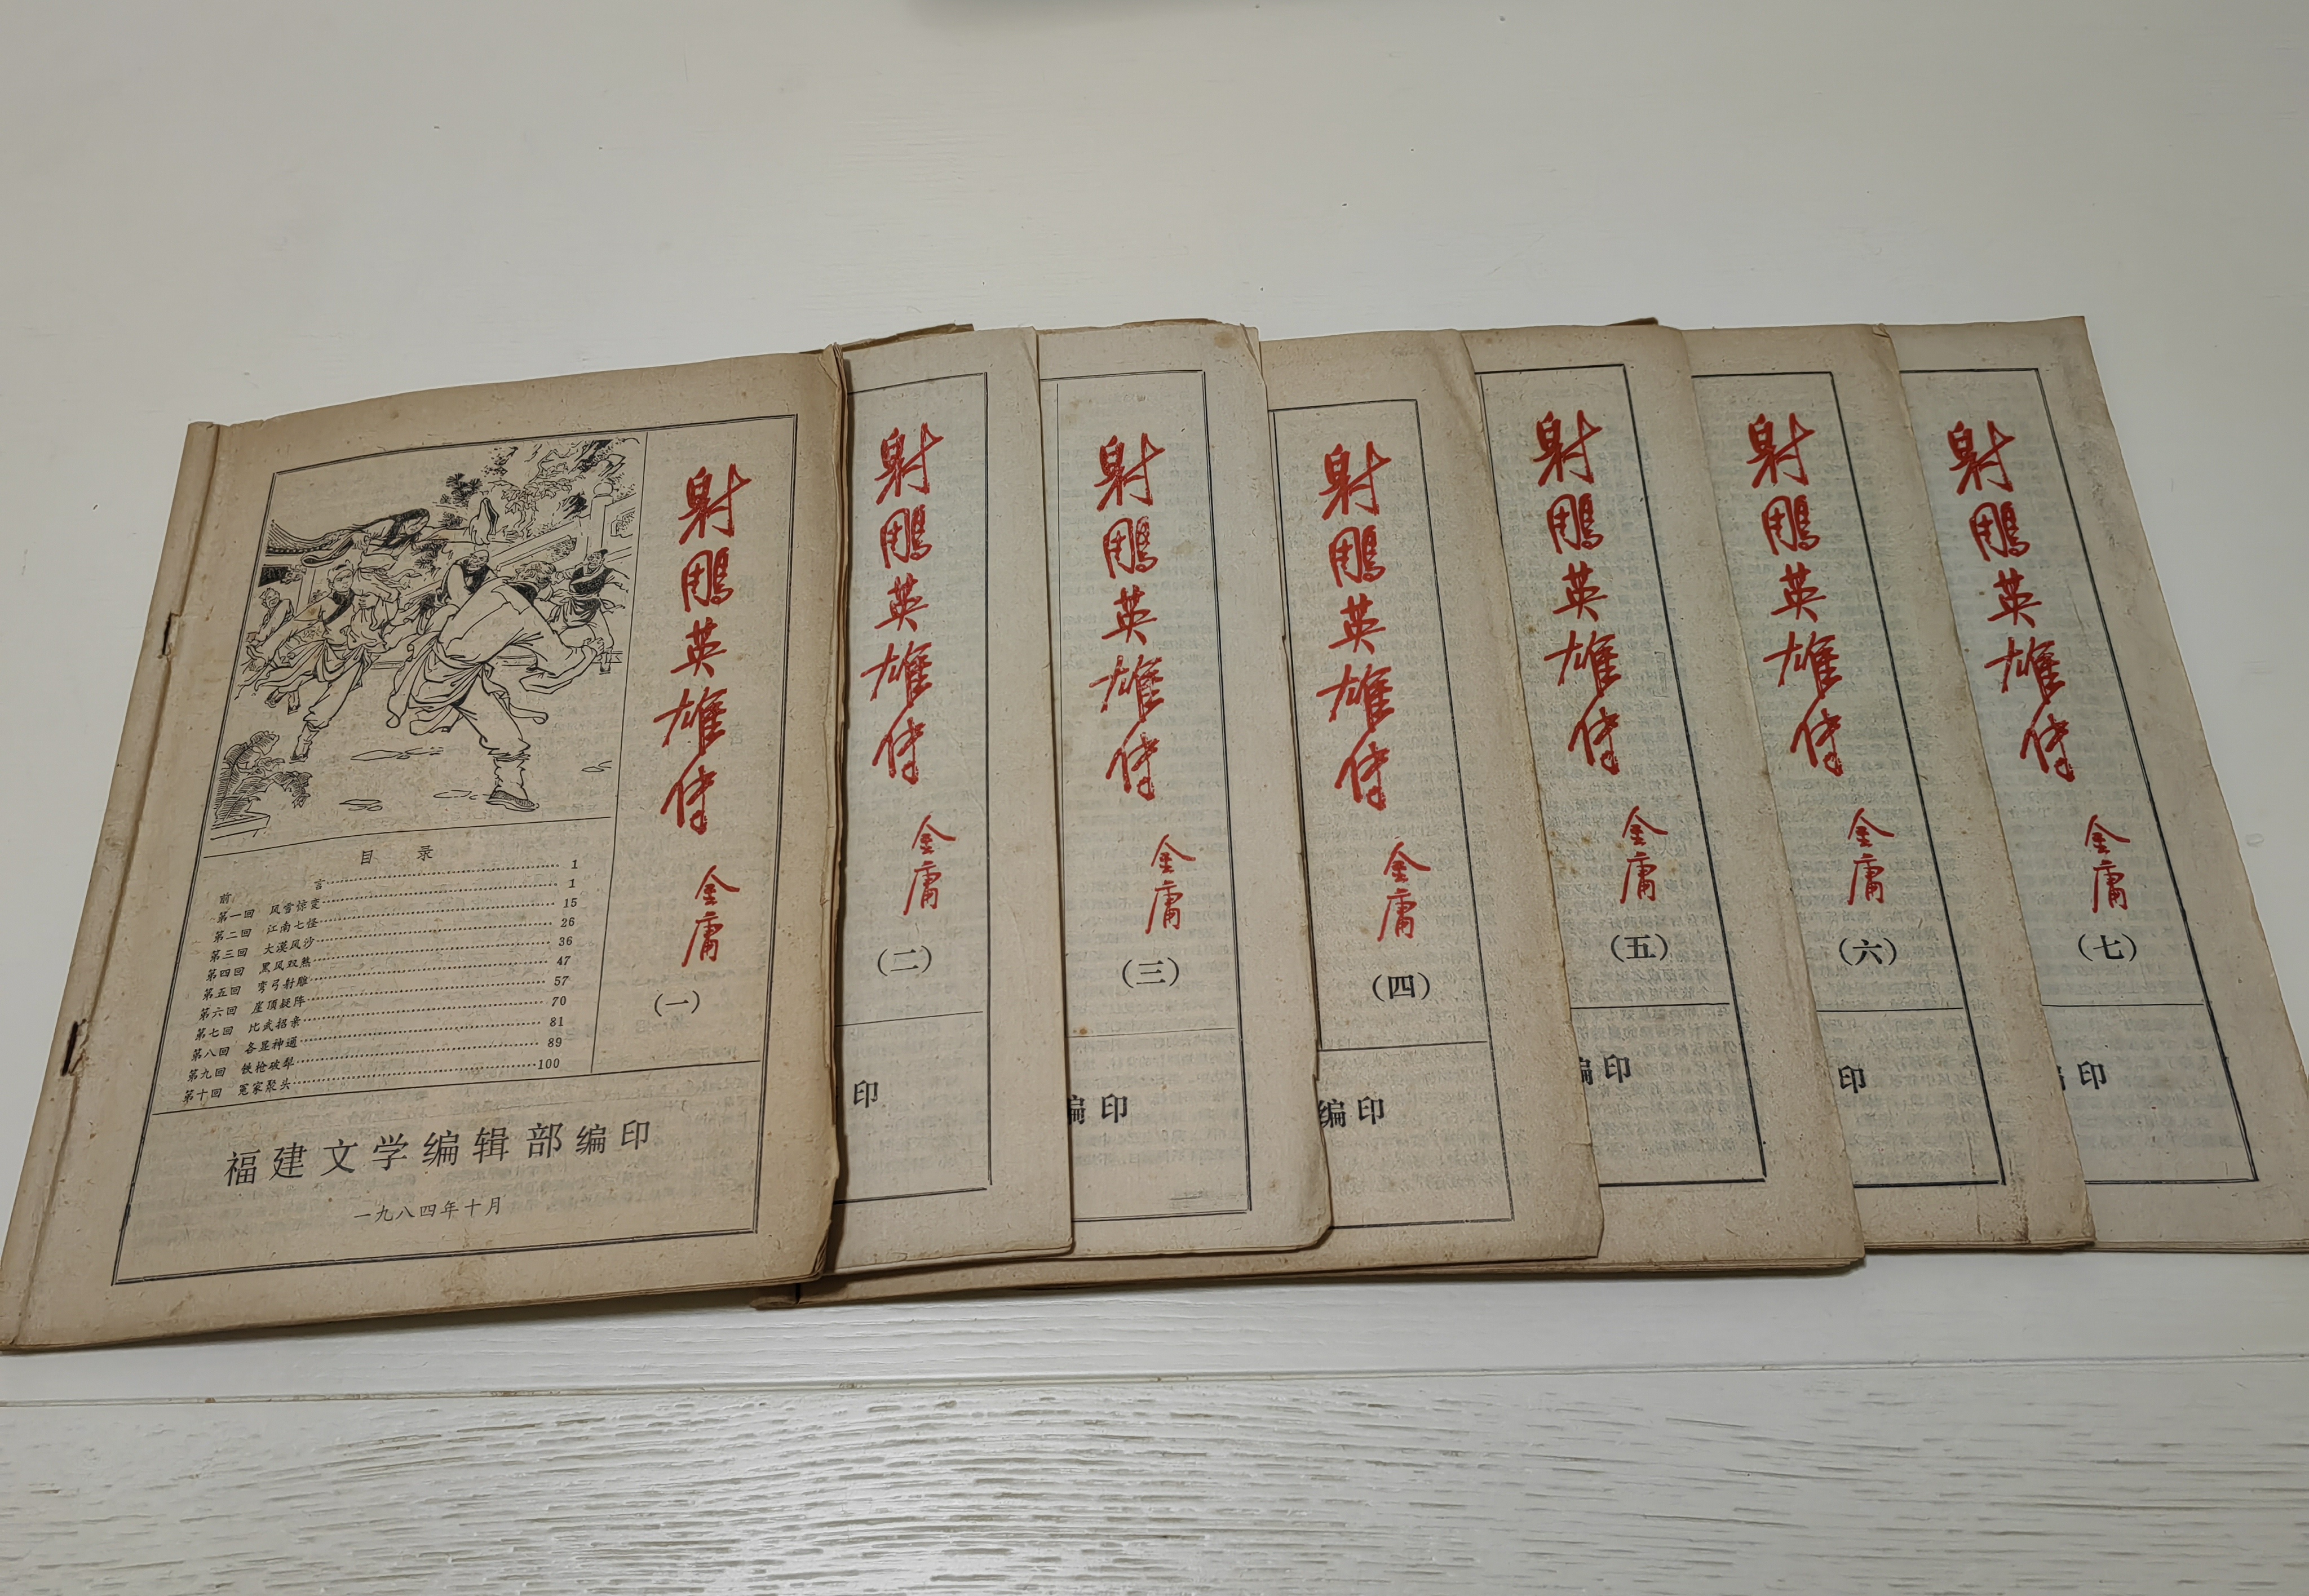 射雕英雄传
金庸
(一)
目 录
前 言 1
第一回 风雪惊变 1
第二回 江南七怪 15
第三回 大漠风沙 26
第四回 黑风双煞 36
第五回 弯弓射雕 47
第六回 崖顶疑阵 57
第七回 比武招亲 70
第八回 各显神通 81
第九回 铁枪破犁 89
第十回 冤家聚头 100
福建文学编辑部编印
一九八四年十月
射雕英雄传
金庸
(二)
印
射雕英雄传
金庸
(三)
编印
射雕英雄传
金庸
(四)
编印
射雕英雄传
金庸
(五)
编印
射雕英雄传
金庸
(六)
印
射雕英雄传
金庸
(七)
印